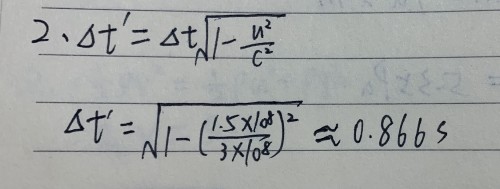 2、Δt' = Δt√(1 - u²/c²)
Δt' = √(1 - (1.5×10⁸/3×10⁸)²) ≈ 0.866 s